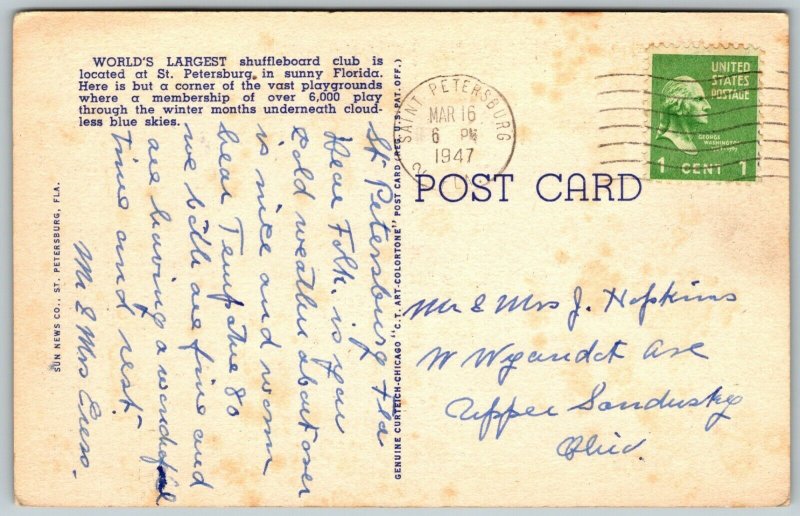 WORLD'S LARGEST shuffleboard club is
located at St. Petersburg in sunny Florida.
Here is but a corner of the vast playgrounds
where a membership of over 6,000 play
through the winter months underneath cloud-
less blue skies.
SUN NEWS CO., ST. PETERSBURG, FLA.
St Petersburg Fla
Dear Folk. is your
cold weather about over
is nice and worm
hear Tempature 80
we both are fine and
are having a wonderful
time and rest
Mr & Mrs
GENUINE CURTEICH-CHICAGO "C.T. ART-COLORTONE" POST CARD (REG. U.S. PAT. OFF.)
SAINT PETERSBURG
MAR 16
6 PM
1947
2
POST CARD
UNITED
STATES
POSTAGE
GEORGE
WASHINGTON
1 CENT 1
Mr & Mrs J. Hopkins
W Wyandot Ave
Upper Sandusky
Ohio.